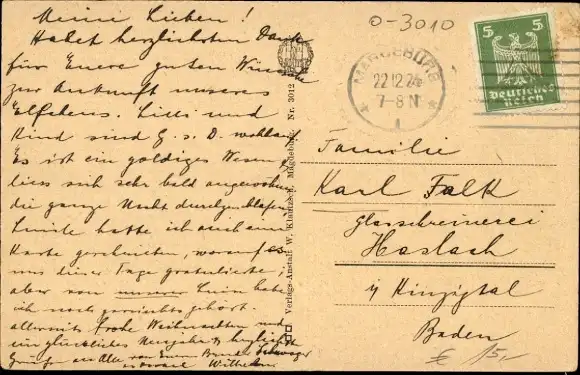 Meine Lieben!
Habet herzlichsten Dank
für Euere guten Wünsche
zur Ankunft unseres
Elfchens. Lilli und
Kind sind G. s. D. wohlauf
Es ist ein goldiges Wesen
liess sich sehr bald angewöhnen
die ganze Nacht durchzuschlafen
hatte ich auch eine
Karte geschrieben, worauf es
uns dieser Tage gratulierte;
aber von unserer habe
ich noch garnichts gehört.
allerseits frohe Weihnachten und
ein glückliches Neujahr & herzliche
Grüße an Alle von Eurem Bruder Schwager
Wilhelm
0-3010
MAGDEBURG
22.12.24
7-8 N
1
5 5
Deutsches
Reich
Verlags-Anstalt W. Klautzsch, Magdeburg. Nr. 3012
Familie
Karl Falk
Glasschreinerei
Haslach
i/ Kinzigtal
Baden
€ 15,-